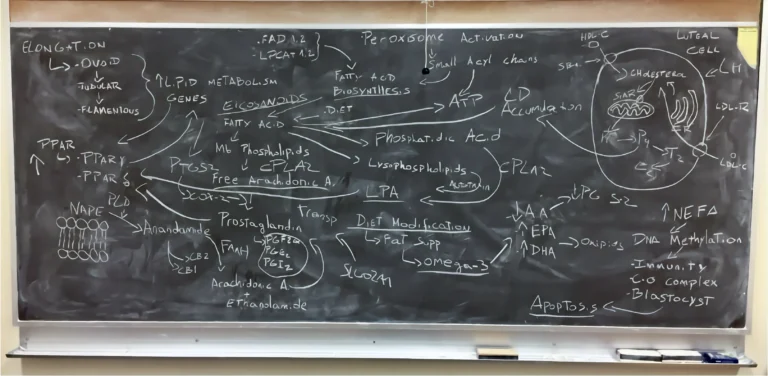 ELONGATION
- OVOID
TUBULAR
- FILAMENTOUS
↑ LIPID METABOLISM
GENES
- FAD 1,2
- LPCAT 1,2
Peroxisome Activation
Small Acyl chains
FATTY ACID
BIOSYNTHESIS
ATP
LD
Accumulation
EICOSANOIDS
DIET
FATTY ACID
Mb Phospholipids
cPLA2
Free Arachidonic A.
Phosphatidic Acid
Lysophospholipids
Autotaxin
cPLA2
LPA
↑ PPAR
- PPAR γ
- PPAR δ
PTGS2
COX-2
Prostaglandin
PGF2α
PGE2
PGI2
Transp
SLCO2A1
NAPE
PLD
Anandamide
CB2
CB1
FAAH
Arachidonic A
+
Ethanolamide
DIET Modification
Fat Supp
Omega-3
↓ AA
↑ EPA
↑ DHA
Oxipins
↓ PG S2
↑ NEFA
DNA Methylation
- Immunity
complex
- Blastocyst
Apoptosis
HDL-C
LUTEAL
CELL
LH
CHOLESTEROL
StAR
P4
LDL-R
LDL-C